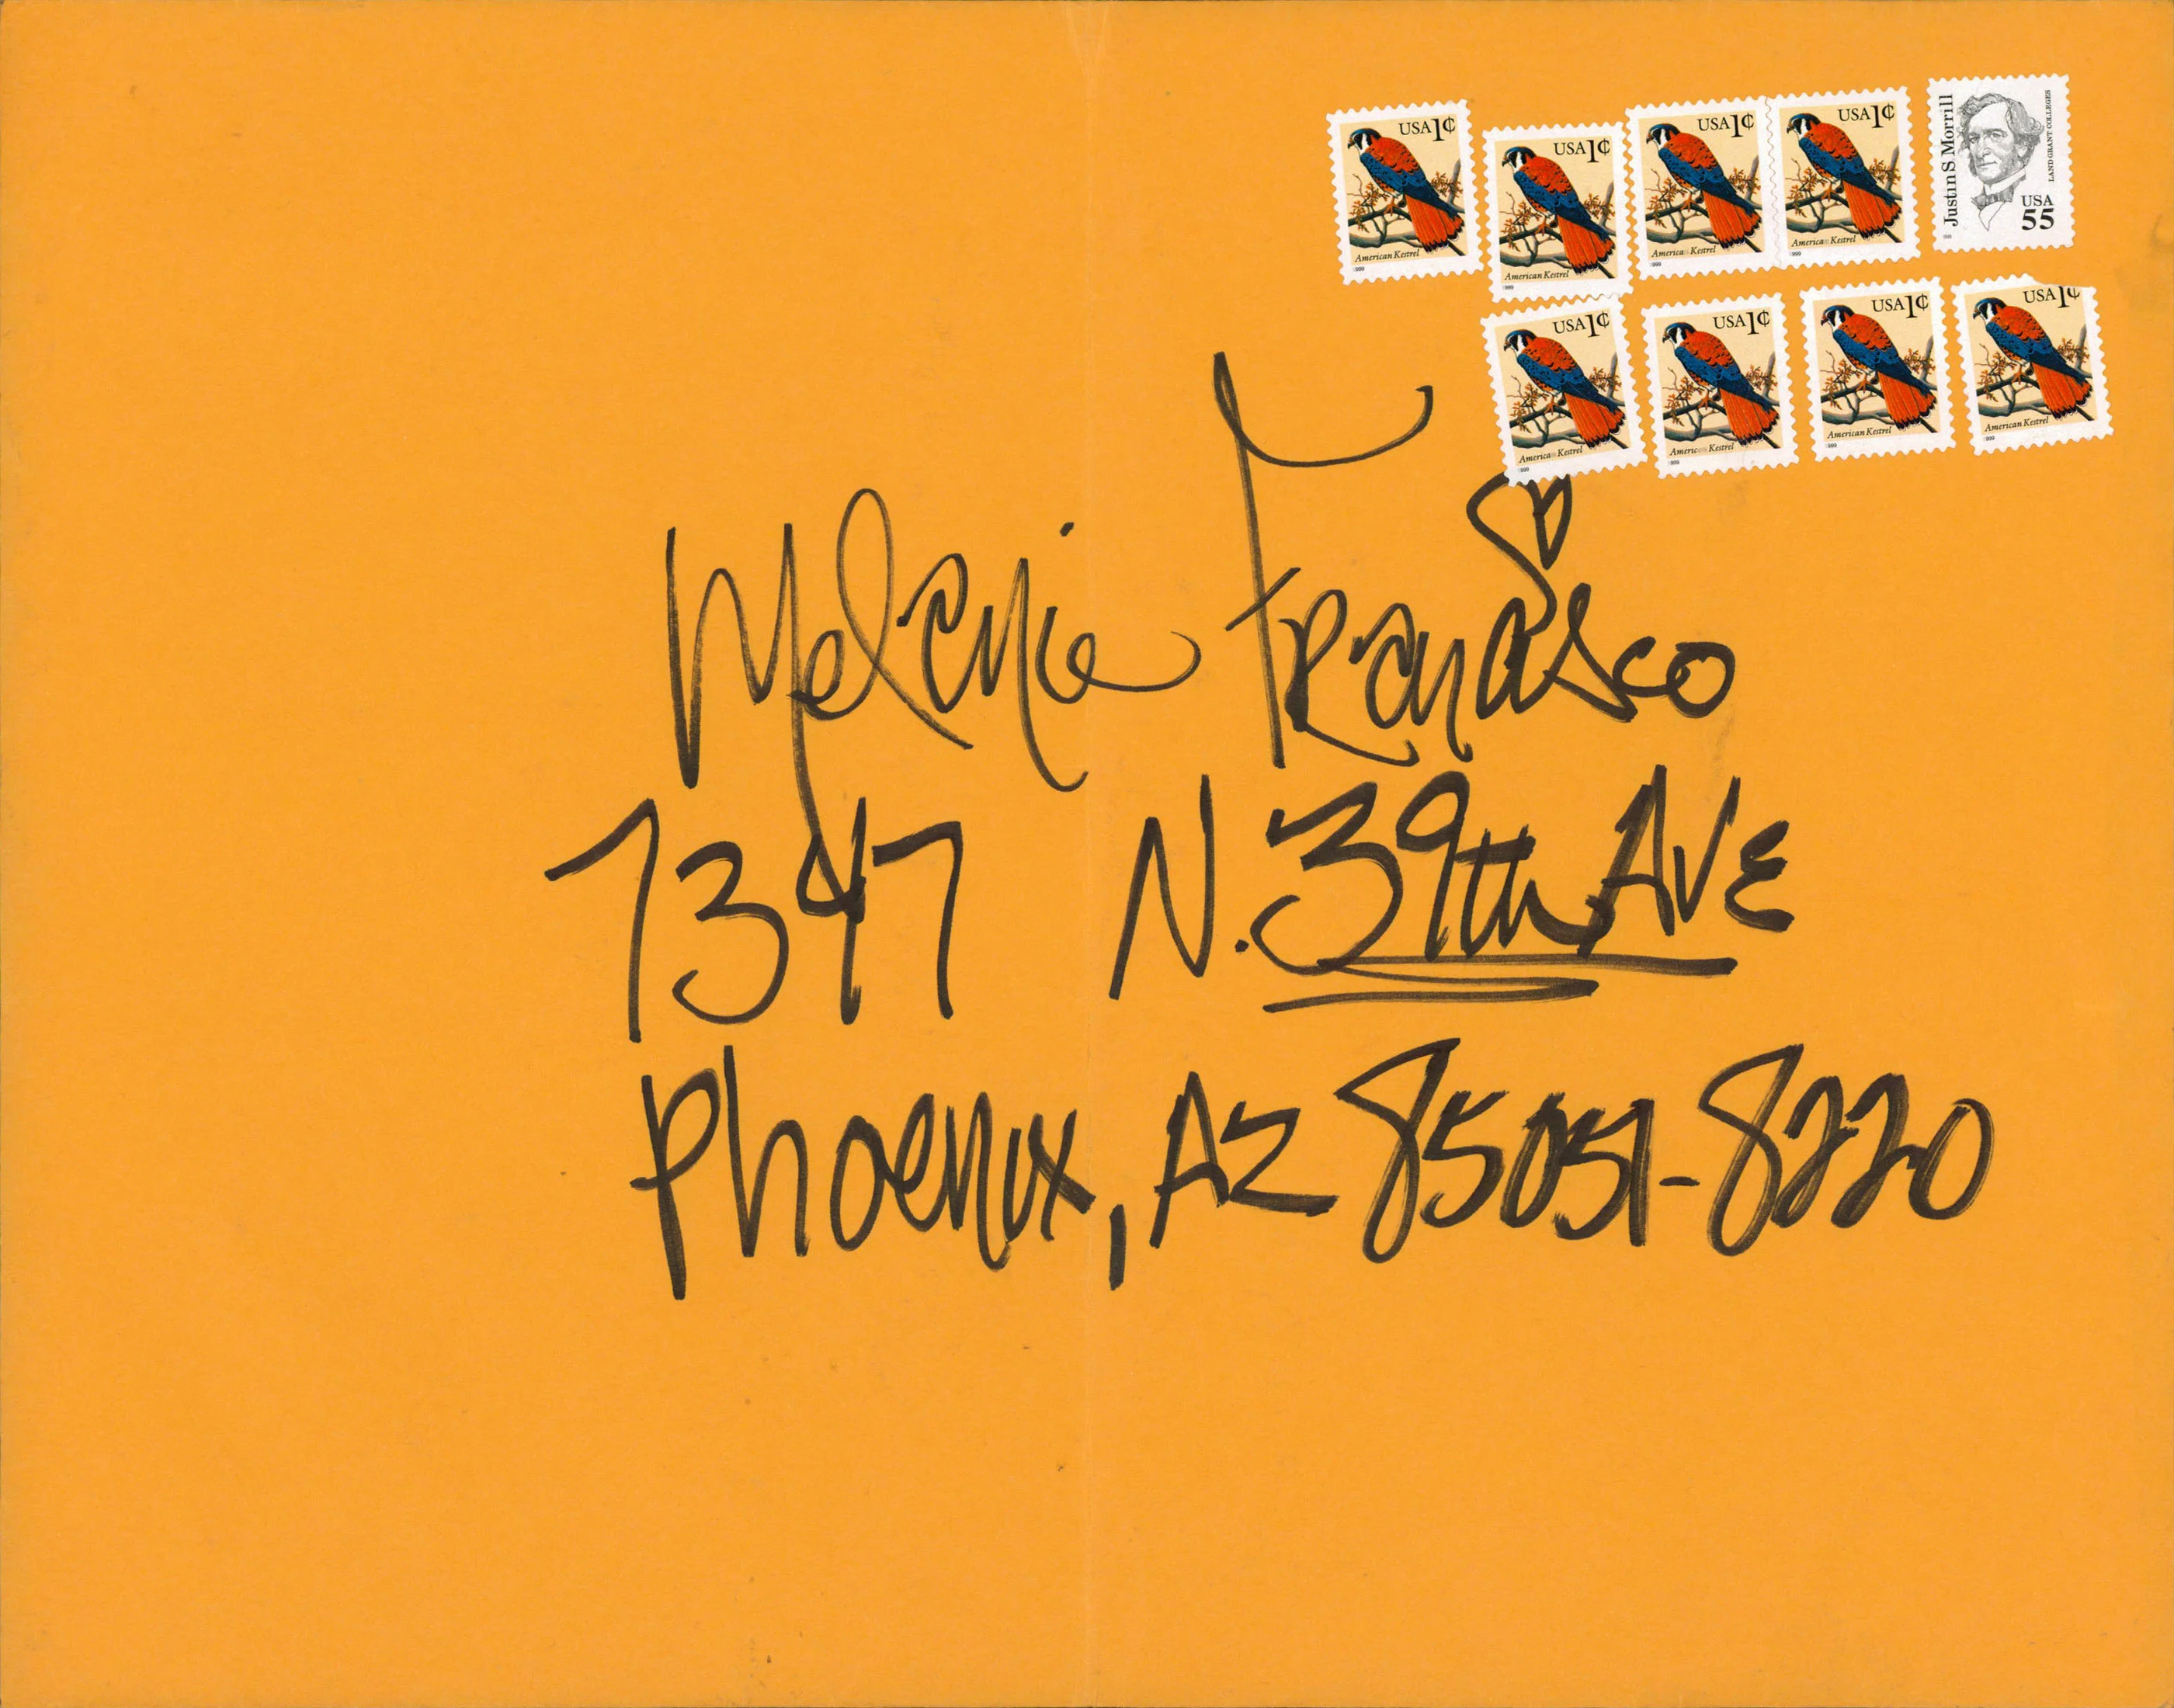 USA 1¢
American Kestrel
1999
USA 1¢
American Kestrel
1999
USA 1¢
American Kestrel
1999
USA 1¢
American Kestrel
1999
Justin S Morrill
LAND GRANT COLLEGES
USA
55
USA 1¢
American Kestrel
1999
USA 1¢
American Kestrel
1999
USA 1¢
American Kestrel
1999
USA 1¢
American Kestrel
1999
Melanie
7347 N. 39th AVE
Phoenix, AZ 85051-8220